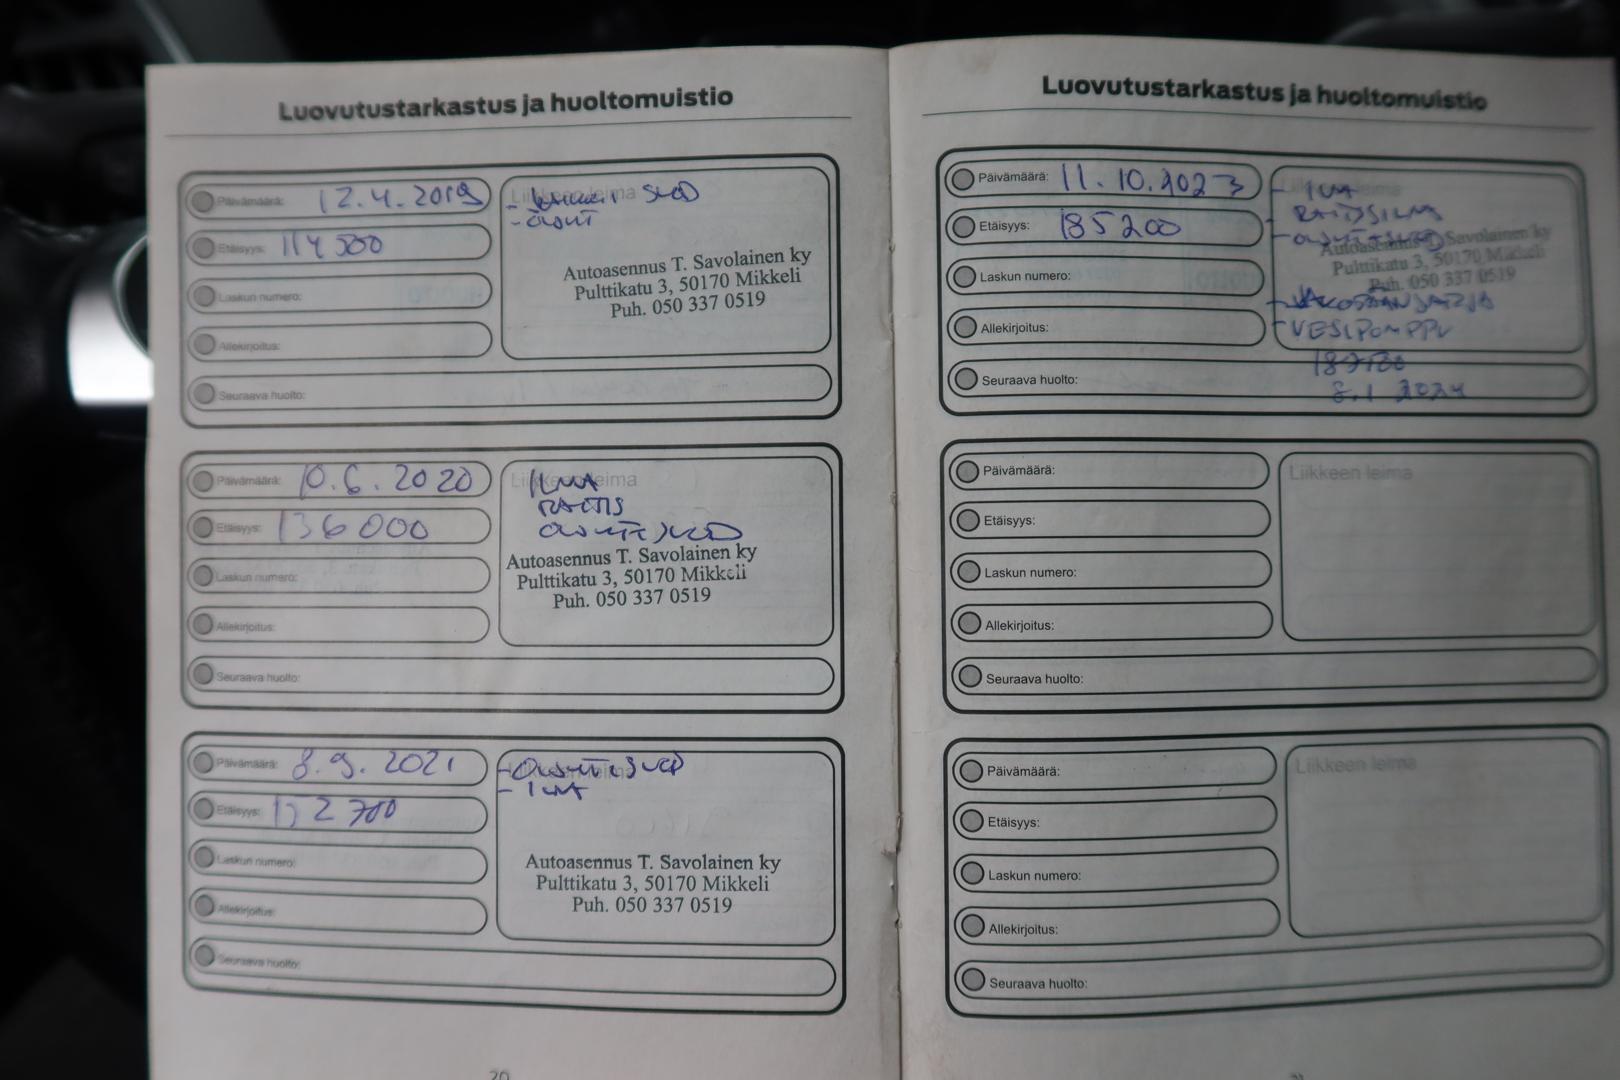 Luovutustarkastus ja huoltomuistio
Päivämäärä: 12.4.2019
Etäisyys: 114 500
Laskun numero:
Allekirjoitus:
Seuraava huolto:
Liikkeen leima
Autoasennus T. Savolainen ky
Pulttikatu 3, 50170 Mikkeli
Puh. 050 337 0519
Päivämäärä: 10.6.2020
Etäisyys: 136 000
Laskun numero:
Allekirjoitus:
Seuraava huolto:
Liikkeen leima
ILMA
RAITIS
Autoasennus T. Savolainen ky
Pulttikatu 3, 50170 Mikkeli
Puh. 050 337 0519
Päivämäärä: 8.9.2021
Etäisyys: 152 700
Laskun numero:
Allekirjoitus:
Seuraava huolto:
Liikkeen leima
Autoasennus T. Savolainen ky
Pulttikatu 3, 50170 Mikkeli
Puh. 050 337 0519
20
Luovutustarkastus ja huoltomuistio
Päivämäärä: 11.10.2023
Etäisyys: 185200
Laskun numero:
Allekirjoitus:
Seuraava huolto:
Liikkeen leima
- ILMA
Autoasennus T. Savolainen ky
Pulttikatu 3, 50170 Mikkeli
Puh. 050 337 0519
- JAKOPÄÄNSARJA
- VESIPOMPPU
8.1 2024
Päivämäärä:
Etäisyys:
Laskun numero:
Allekirjoitus:
Seuraava huolto:
Liikkeen leima
Päivämäärä:
Etäisyys:
Laskun numero:
Allekirjoitus:
Seuraava huolto:
Liikkeen leima